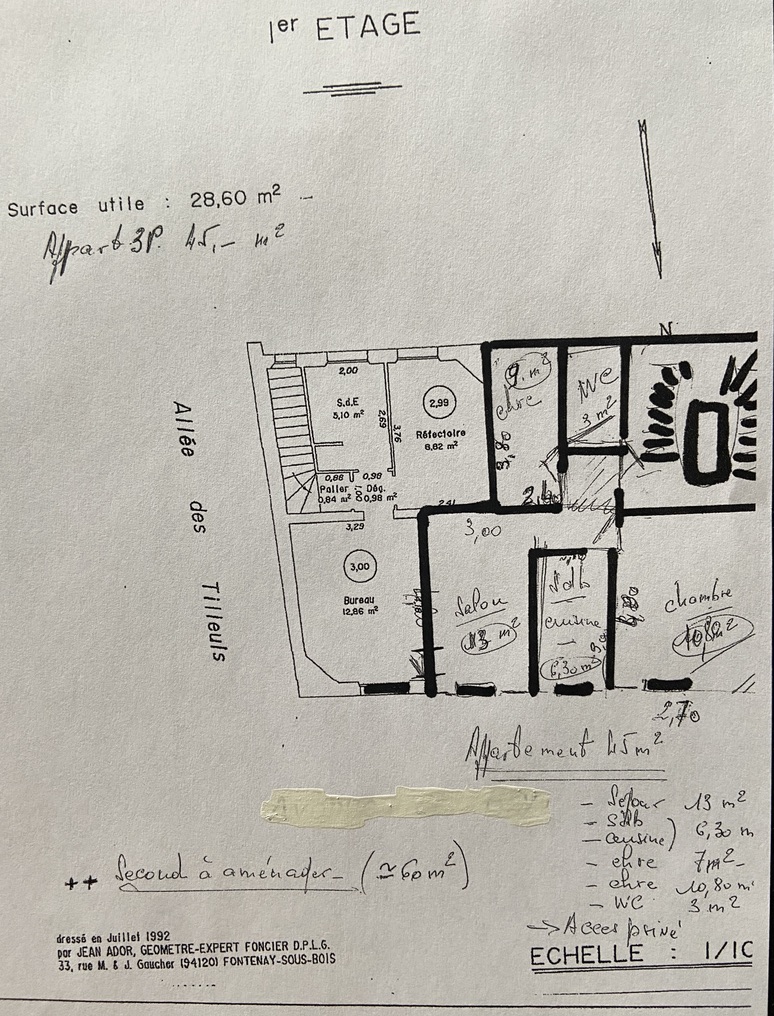 1er ETAGE
Surface utile : 28,60 m²
Appart 3P. 45,- m²
N
Allée des Tilleuls
2,00
S.d.E
5,10 m²
2,69
3,76
2,99
Réfectoire
8,82 m²
9. m²
chre
WC
3 m²
0,86
0,98
Palier
0,84 m²
1,00
Dég.
0,98 m²
2,91
3,29
3,00
3,00
Bureau
12,86 m²
Salon
13 m²
SdB
cuisine
6,30 m²
chambre
10,80 m²
2,70
Appartement 45 m²
- Séjour 13 m²
- SdB
- cuisine ) 6,30 m
- chre 7 m²-
- chre 10,80 m²
- WC 3 m²
-> Acces privé
++ Second à aménager - (≃ 60 m²)
dressé en Juillet 1992
par JEAN ADOR, GEOMETRE-EXPERT FONCIER D.P.L.G.
33, rue M. & J. Gaucher (94120) FONTENAY-SOUS-BOIS
ECHELLE : 1/10